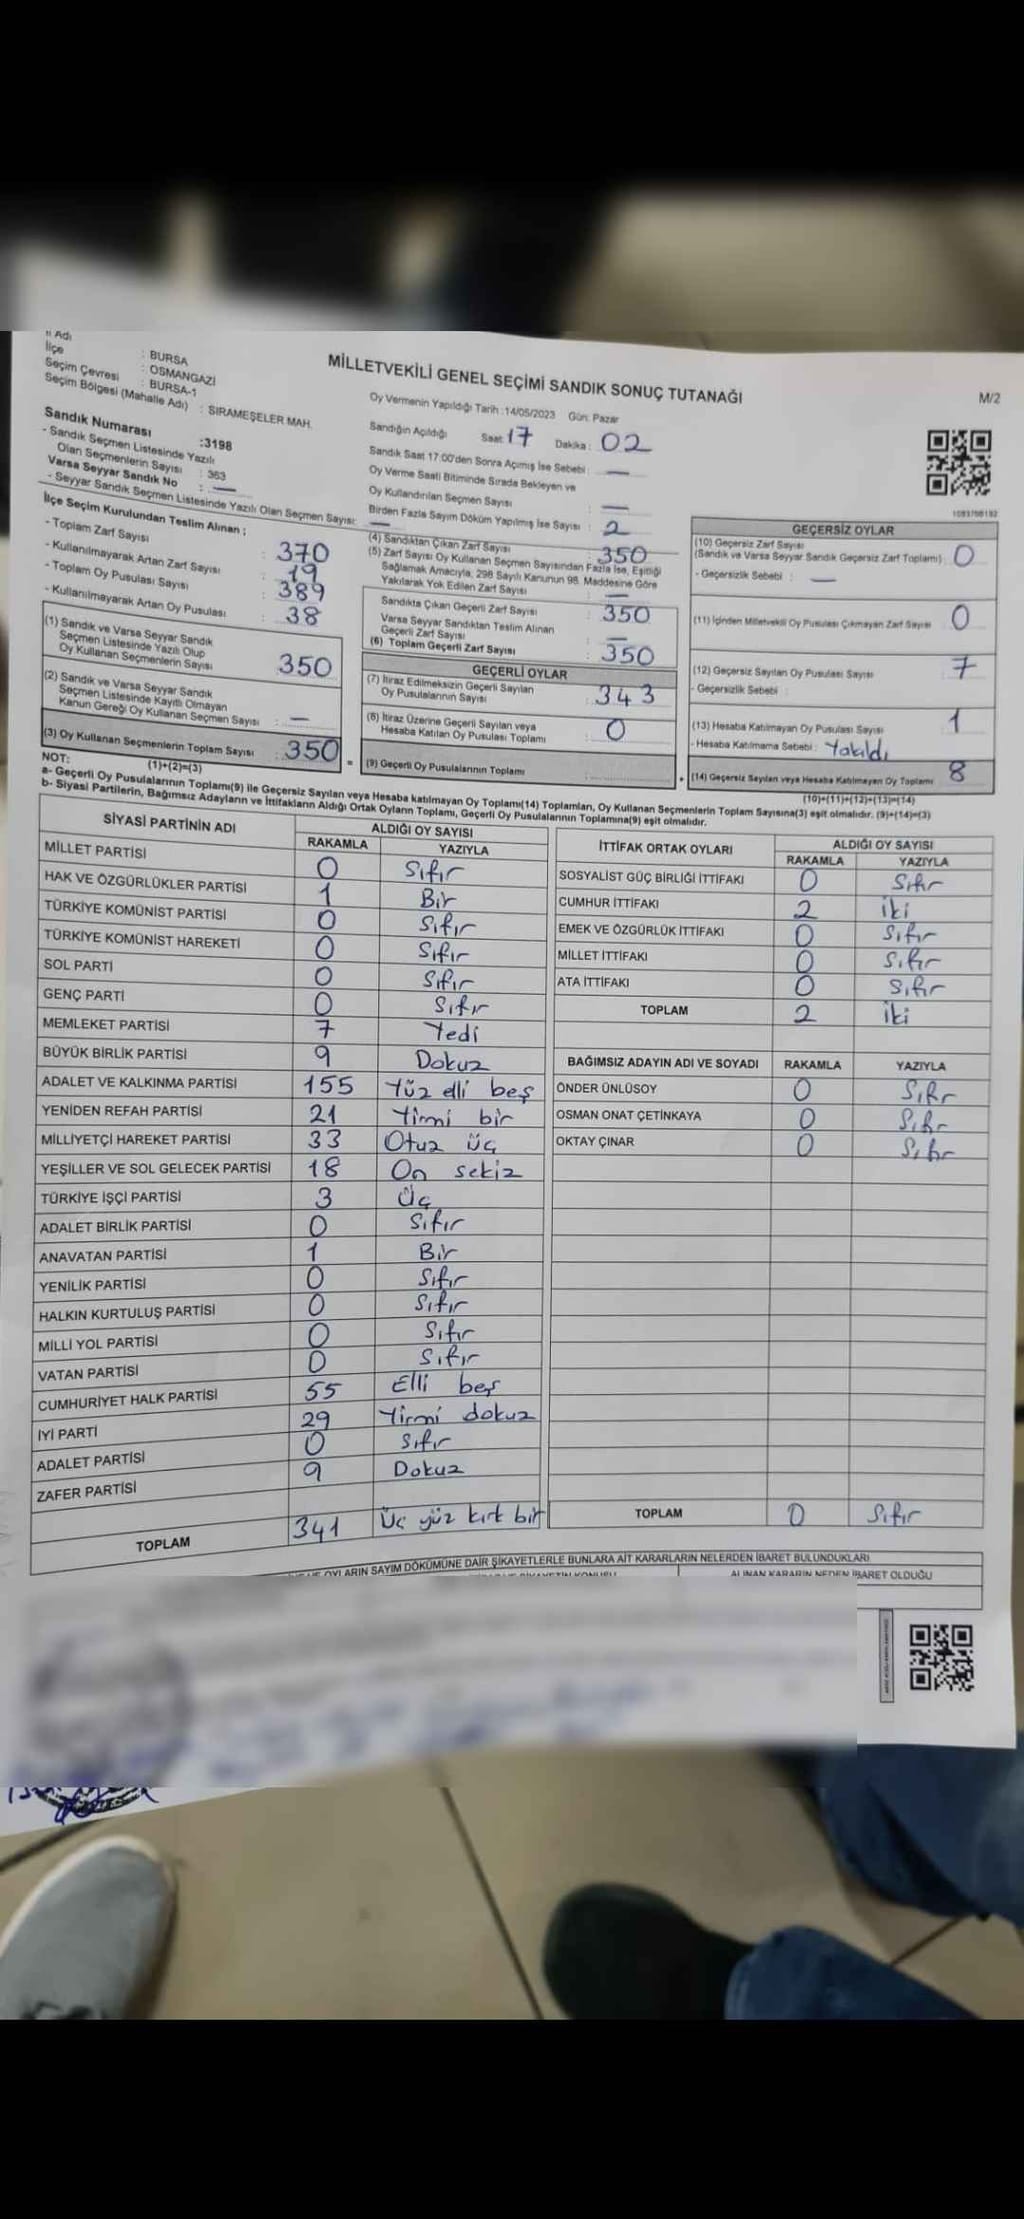 İl Adı : BURSA
İlçe : OSMANGAZİ
Seçim Çevresi : BURSA-1
Seçim Bölgesi (Mahalle Adı) : SIRAMEŞELER MAH.
Sandık Numarası :3198
- Sandık Seçmen Listesinde Yazılı
Olan Seçmenlerin Sayısı : 363
Varsa Seyyar Sandık No : —
- Seyyar Sandık Seçmen Listesinde Yazılı Olan Seçmen Sayısı: —
MİLLETVEKİLİ GENEL SEÇİMİ SANDIK SONUÇ TUTANAĞI
M/2
Oy Vermenin Yapıldığı Tarih :14/05/2023 Gün: Pazar
Sandığın Açıldığı Saat: 17 Dakika : 02
Sandık Saat 17:00'den Sonra Açımış İse Sebebi : —
Oy Verme Saati Bitiminde Sırada Bekleyen ve
Oy Kullandırılan Seçmen Sayısı : —
Birden Fazla Sayım Döküm Yapılmış İse Sayısı : 2
İlçe Seçim Kurulundan Teslim Alınan ;
- Toplam Zarf Sayısı : 370
- Kullanılmayarak Artan Zarf Sayısı : 19
- Toplam Oy Pusulası Sayısı : 389
- Kullanılmayarak Artan Oy Pusulası : 38
(1) Sandık ve Varsa Seyyar Sandık
Seçmen Listesinde Yazılı Olup
Oy Kullanan Seçmenlerin Sayısı : 350
(2) Sandık ve Varsa Seyyar Sandık
Seçmen Listesinde Kayıtlı Olmayan
Kanun Gereği Oy Kullanan Seçmen Sayısı : —
(3) Oy Kullanan Seçmenlerin Toplam Sayısı : 350
(1)+(2)=(3)
(4) Sandıktan Çıkan Zarf Sayısı : 350
(5) Zarf Sayısı Oy Kullanan Seçmen Sayısından Fazla İse, Eşitliği
Sağlamak Amacıyla, 298 Sayılı Kanunun 98. Maddesine Göre
Yakılarak Yok Edilen Zarf Sayısı : —
Sandıkta Çıkan Geçerli Zarf Sayısı : 350
Varsa Seyyar Sandıktan Teslim Alınan
Geçerli Zarf Sayısı : —
(6) Toplam Geçerli Zarf Sayısı : 350
GEÇERLİ OYLAR
(7) İtiraz Edilmeksizin Geçerli Sayılan
Oy Pusulalarının Sayısı : 343
(8) İtiraz Üzerine Geçerli Sayılan veya
Hesaba Katılan Oy Pusulası Toplamı : 0
(9) Geçerli Oy Pusulalarının Toplamı :
GEÇERSİZ OYLAR
(10) Geçersiz Zarf Sayısı
(Sandık ve Varsa Seyyar Sandık Geçersiz Zarf Toplamı) : 0
- Geçersizlik Sebebi : —
(11) İçinden Milletvekili Oy Pusulası Çıkmayan Zarf Sayısı : 0
(12) Geçersiz Sayılan Oy Pusulası Sayısı : 7
- Geçersizlik Sebebi :
(13) Hesaba Katılmayan Oy Pusulası Sayısı : 1
- Hesaba Katılmama Sebebi : Yakıldı
(14) Geçersiz Sayılan veya Hesaba Katılmayan Oy Toplamı : 8
(10)+(11)+(12)+(13)=(14)
NOT:
a- Geçerli Oy Pusulalarının Toplamı(9) ile Geçersiz Sayılan veya Hesaba katılmayan Oy Toplamı(14) Toplamları, Oy Kullanan Seçmenlerin Toplam Sayısına(3) eşit olmalıdır. (9)+(14)=(3)
b- Siyasi Partilerin, Bağımsız Adayların ve İttifakların Aldığı Ortak Oyların Toplamı, Geçerli Oy Pusulalarının Toplamına(9) eşit olmalıdır.
SİYASİ PARTİNİN ADI
ALDIĞI OY SAYISI
RAKAMLA YAZIYLA
MİLLET PARTİSİ 0 Sıfır
HAK VE ÖZGÜRLÜKLER PARTİSİ 1 Bir
TÜRKİYE KOMÜNİST PARTİSİ 0 Sıfır
TÜRKİYE KOMÜNİST HAREKETİ 0 Sıfır
SOL PARTİ 0 Sıfır
GENÇ PARTİ 0 Sıfır
MEMLEKET PARTİSİ 7 Yedi
BÜYÜK BİRLİK PARTİSİ 9 Dokuz
ADALET VE KALKINMA PARTİSİ 155 Yüz elli beş
YENİDEN REFAH PARTİSİ 21 Yirmi bir
MİLLİYETÇİ HAREKET PARTİSİ 33 Otuz üç
YEŞİLLER VE SOL GELECEK PARTİSİ 18 On sekiz
TÜRKİYE İŞÇİ PARTİSİ 3 Üç
ADALET BİRLİK PARTİSİ 0 Sıfır
ANAVATAN PARTİSİ 1 Bir
YENİLİK PARTİSİ 0 Sıfır
HALKIN KURTULUŞ PARTİSİ 0 Sıfır
MİLLİ YOL PARTİSİ 0 Sıfır
VATAN PARTİSİ 0 Sıfır
CUMHURİYET HALK PARTİSİ 55 Elli beş
İYİ PARTİ 29 Yirmi dokuz
ADALET PARTİSİ 0 Sıfır
ZAFER PARTİSİ 9 Dokuz
TOPLAM 341 Üç yüz kırk bir
İTTİFAK ORTAK OYLARI
ALDIĞI OY SAYISI
RAKAMLA YAZIYLA
SOSYALİST GÜÇ BİRLİĞİ İTTİFAKI 0 Sıfır
CUMHUR İTTİFAKI 2 iki
EMEK VE ÖZGÜRLÜK İTTİFAKI 0 Sıfır
MİLLET İTTİFAKI 0 Sıfır
ATA İTTİFAKI 0 Sıfır
TOPLAM 2 iki
BAĞIMSIZ ADAYIN ADI VE SOYADI RAKAMLA YAZIYLA
ÖNDER ÜNLÜSOY 0 Sıfır
OSMAN ONAT ÇETİNKAYA 0 Sıfır
OKTAY ÇINAR 0 Sıfır
TOPLAM 0 Sıfır
OYLARIN SAYIM DÖKÜMÜNE DAİR ŞİKAYETLERLE BUNLARA AİT KARARLARIN NELERDEN İBARET BULUNDUKLARI
ALINAN KARARIN NEDEN İBARET OLDUĞU